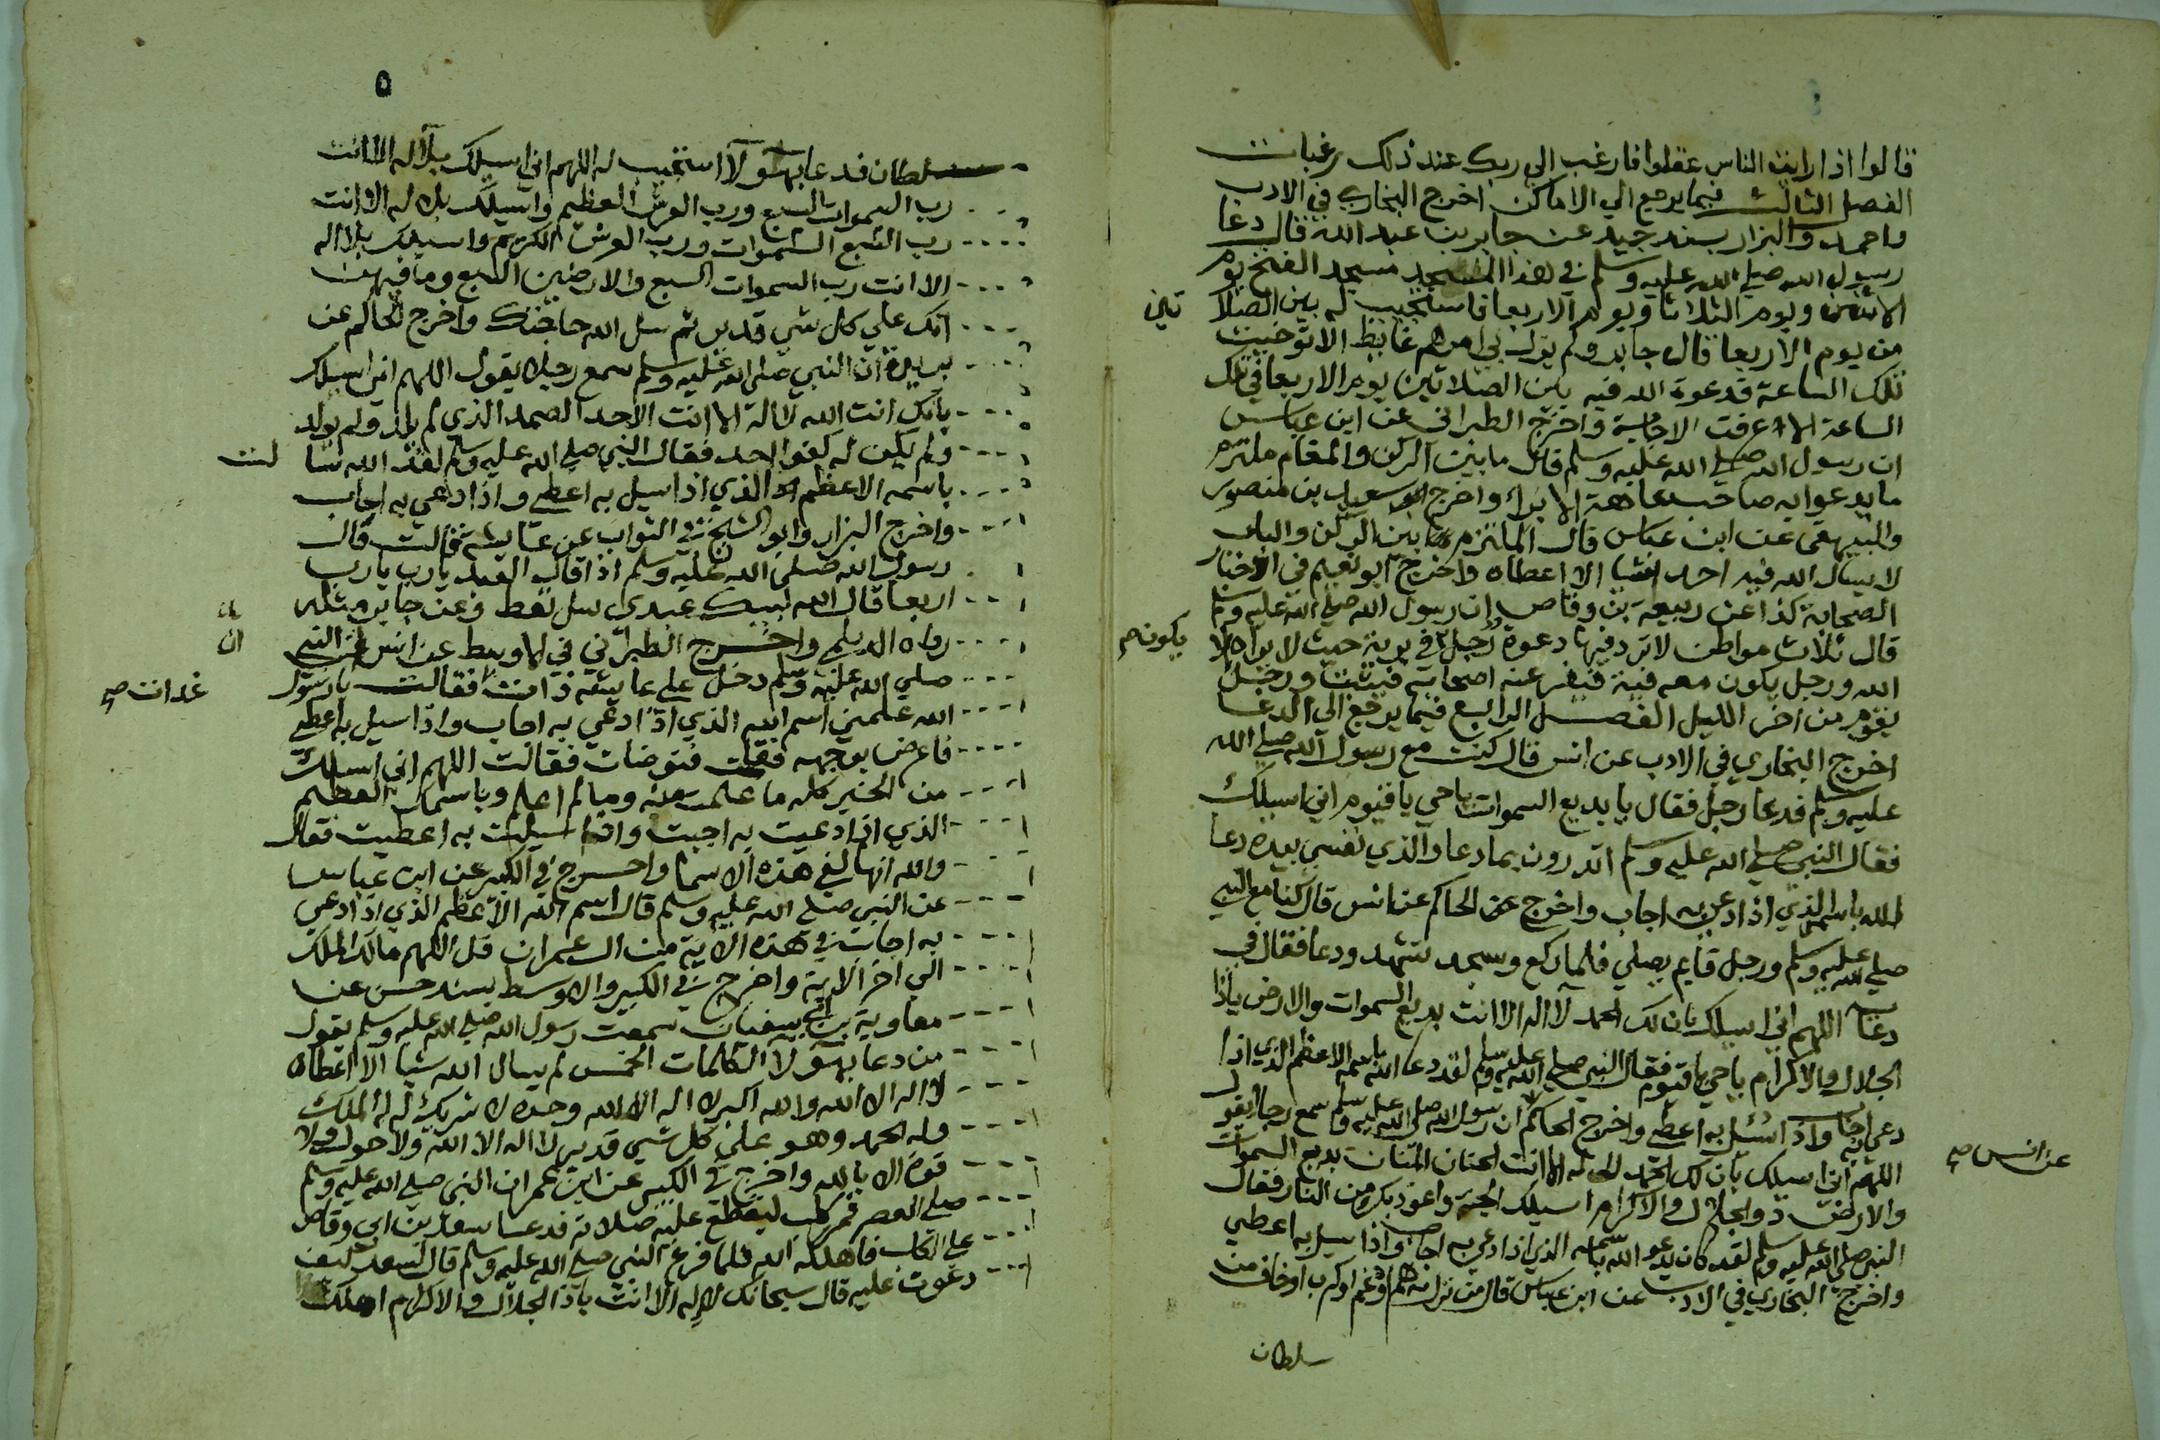 قالوا اذا رايت الناس عقلوا فارغب الي ربك عند ذلك رغبات
الفصل الثالث فيما يرجع الي الاماكن اخرج البخاري في الادب
واحمد والبزار بسند جيد عن جابر بن عبد الله قال دعا
رسول الله صلي الله عليه وسلم في هذا المسجد مسجد الفتح يوم
الاثنين ويوم الثلاثا ويوم الاربعا فاستجيب له بين الصلا تين
من يوم الاربعا قال جابر ولم ينزل بي امر هم غايظ الا توخيت
تلك الساعة فدعوة الله فيه بين الصلاتين يوم الاربعا في تلك
الساعة الا عرفت الاجابة واخرج الطبراني عن ابن عباس
ان رسول الله صلي الله عليه وسلم قال ما بين الركن والمقام ملتزم
ما يدعوا به صاحب عاهة الا برا واخرج سعيد بن منصور
والبيهقي عن ابن عباس قال الملتزم ما بين الركن والباب
لا يسال الله فيه احد شيا الا اعطاه واخرج ابو نعيم في اخبار
الصحابة كذا عن ربيعة بن وقاص ان رسول الله صلي الله عليه وسلم
قال ثلاث مواطن لا ترد فيها دعوة رجل في برية حيث لا يراه الا
يكون صح
الله ورجل يكون معه فية فيفر عنه اصحابه فيثبت ورجل
يقوم من اخر الليل الفصل الرابع فيما يرجع الي الدعا
اخرج البخاري في الادب عن انس قال كنت مع رسول الله صلي الله
عليه وسلم فدعا رجل فقال يا بديع السموات يا حي يا قيوم اني اسيلك
فقال النبي صلي الله عليه وسلم اتدرون بما دعا والذي نفسي بيده دعا
الله باسمه الذي اذا دعي به اجاب واخرج الحاكم عن انس قال كنا مع النبي
صلي الله عليه وسلم ورجل قايم يصلي فلما ركع وسجد تشهد ودعا فقال في
دعايه اللهم اني اسيلك بان لك الحمد لا اله الا انت بديع السموات والارض ياذا
الجلال والاكرام يا حي يا قيوم فقال النبي صلي الله عليه وسلم لقد دعا الله باسمه الاعظم الذي اذا
دعي به اجاب واذا سئل به اعطي واخرج الحاكم ان رسول الله صلي الله عليه وسلم سمع رجلا يقول
عن انس صح
اللهم اني اسيلك بان لك الحمد لا اله الا انت الحنان المنان بديع السموات
والارض ذو الجلال والاكرام اسيلك الجنة واعوذ بك من النار فقال
النبي صلي الله عليه وسلم لقد كان يدعو الله باسمه الذي اذا دعي به اجاب واذا سيل به اعطي
واخرج البخاري في الادب عن ابن عباس قال من نزل به هم او غم او كرب او خاف من
سلطان
٥
سلطان فدعا بهولآ استجيب له اللهم اني اسيلك بلا اله الا انت
رب السموات السبع ورب العرش العظيم واسيلك بلا اله الا انت
رب السبع السموات ورب العرش الكريم واسيلك بلا اله
الا انت رب السموات السبع والارضين السبع وما فيهن
انك علي كل شي قدير ثم سل الله حاجتك واخرج الحاكم عن
بريدة ان النبي صلي الله عليه وسلم سمع رجلا يقول اللهم اني اسيلك
بانك انت الله لا اله الا انت الاحد الصمد الذي لم يلد ولم يولد
ولم يكن له كفوا احد فقال النبي صلي الله عليه وسلم لقد الله سا لت
باسمه الاعظم الذي اذا سيل به اعطي واذا دعي به اجاب
واخرج البزار وابو الشيخ في الثواب عن عايشة قالت قال
رسول الله صلي الله عليه وسلم اذا قال العبد يا رب يا رب
اربعا قال الله لبيك عبدي سل تعط وعن جابر مثله
رواه الديلمي واخرج الطبراني في الاوسط عن انس ان النبي
صلي الله عليه وسلم دخل علي عايشة ذات فقالت يا رسول
غداة صح
الله علمني اسم الله الذي اذا دعي به اجاب واذا سيل به اعطي
فاعرض بوجهه فقامت فتوضات فقالت اللهم اني اسيلك
من الخير كله ما علمت منه وما لم اعلم وباسمك العظيم
الذي اذا دعيت به اجبت واذا سيلت به اعطيت فقال
والله انها لفي هذه الاسما واخرج في الكبير عن ابن عباس
عن النبي صلي الله عليه وسلم قال اسم الله الاعظم الذي اذا دعي
به اجاب في هذه الاية من ال عمران قل اللهم مالك الملك
الي اخر الاية واخرج في الكبير والاوسط بسند حسن عن
معاوية بن ابي سفيان سمعت رسول الله صلي الله عليه وسلم يقول
من دعا بهولا الكلمات الخمس لم يسال الله شيا الا اعطاه
لا اله الا الله والله اكبر لا اله الا الله وحده لا شريك له له الملك
وله الحمد وهو علي كل شي قدير لا اله الا الله ولا حول ولا
قوة الا بالله واخرج في الكبير عن ابن عمر ان النبي صلي الله عليه وسلم
صلي العصر فمر كلب ليقطع عليه صلاته فدعا سعد بن ابي وقاص
علي الكلب فاهلكه الله فلما فرغ النبي صلي الله عليه وسلم قال لسعد كيف
دعوت عليه قال سبحانك لا اله الا انت ياذا الجلال والاكرام اهلك